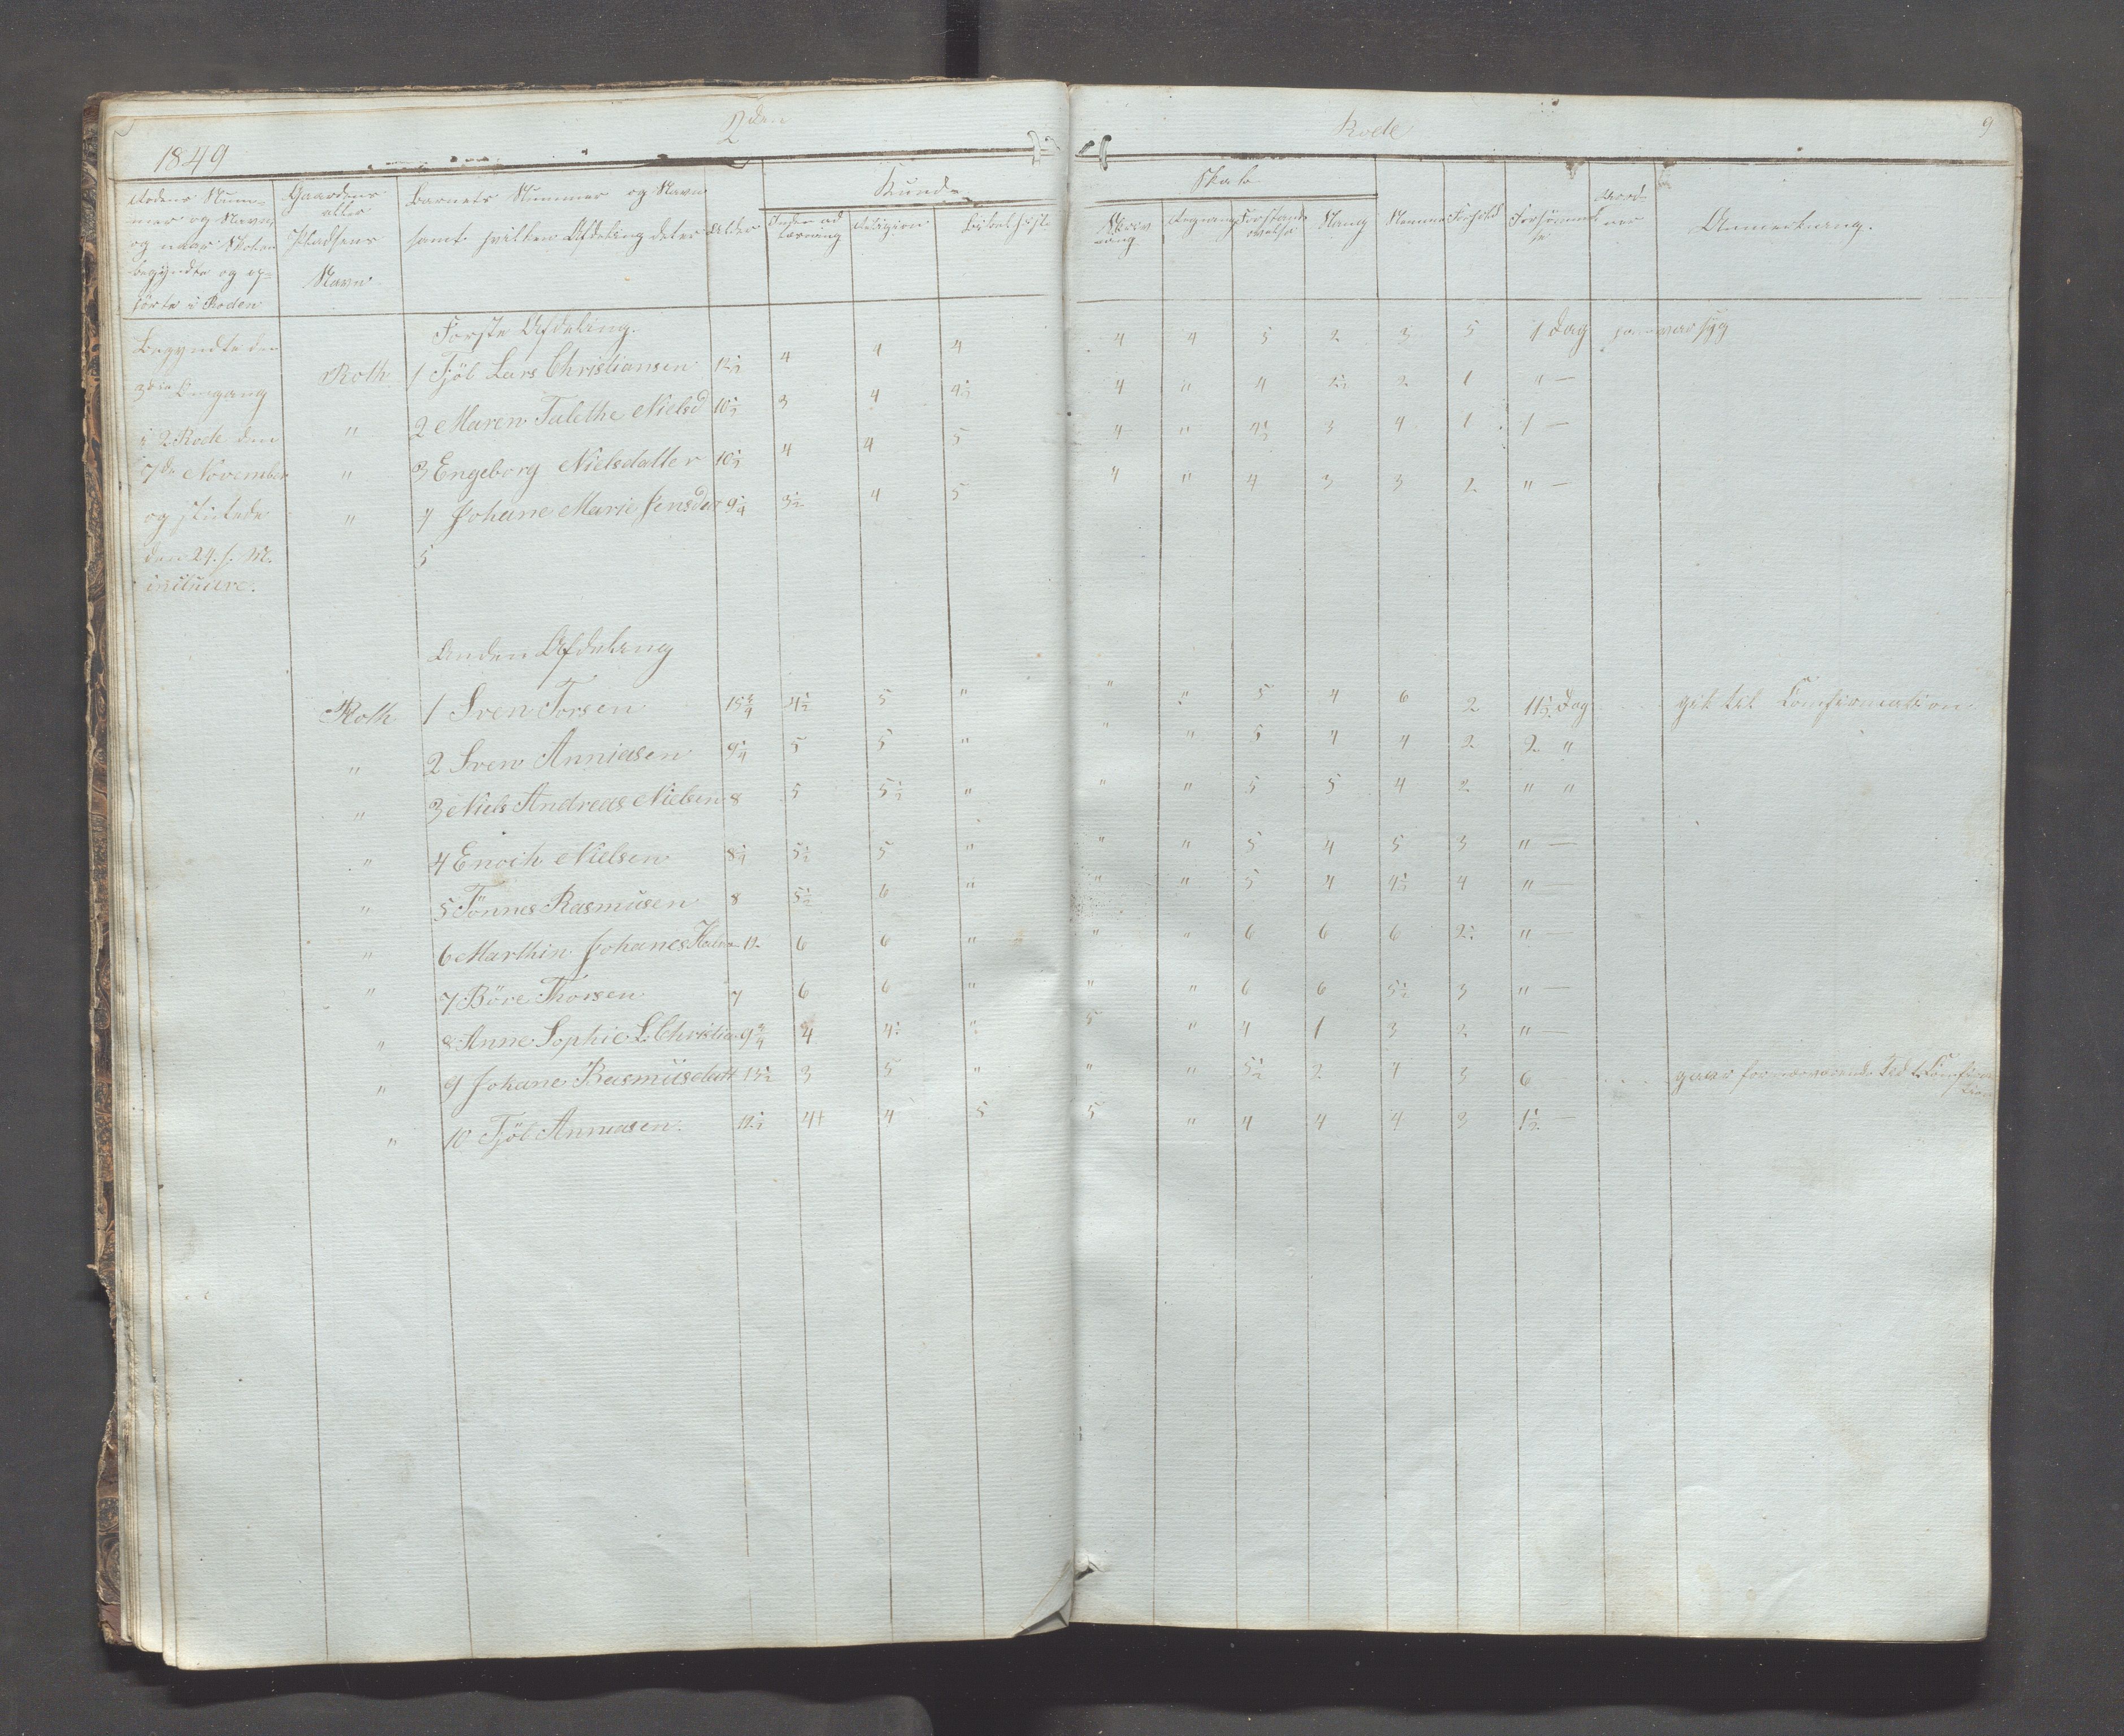 2den Rode 9
1849
Rodens Num-
mer og Navn,
og naar Skolen
begyndte og op-
hørte i Roden
Gaardens
eller
Pladsens
Navn
Barnets Nummer og Navn
samt hvilken Afdeling det er
Alder
Kund-
skab
Inden ad
læsning
Religion
Bibelhist.
Skriv
ning
Regning
Forstands
øvelse
Sang
Nemme
Forhold
Forsømmel
se
Anmerkning.
Begyndte den
3die Omgang
i 2 Rode den
7de November
og sluttede
den 24. s. M.
inclusive.
Første Afdeling.
Roth 1 Tjöl Lars Christiansen 12½ 4 4 4 4 4 5 2 3 5 1 Dag var syg
" 2 Maren Talethe Nielsd 10½ 3 4 4½ 4 " 4 2½ 2 1 " —
" 3 Engeborg Nielsdatter 10½ 4 4 5 4 " 4½ 3 4 1 1 —
" 4 Johane Marie Jensdat 9¼ 3½ 4 5 4 " 4 3 3 2 " —
5
Anden Afdeling
Roth 1 Sven Torsen 15¾ 4½ 5 " " " 5 4 6 2 11½ Dag gik til Confirmation
" 2 Sven Anniasen 9¼ 5 5 " " " 5 4 4 2 2 "
" 3 Niels Andreas Nielsen 8 5 5½ " " " 5 5 4 2 " "
" 4 Enoch Nielsen 8¼ 5½ 5 " " " 5 4 5 3 " —
" 5 Tönnes Rasmusen 8 5½ 6 " " " 5 4 4½ 4 " —
" 6 Marthin Johanes 12 6 6 " " " 6 6 6 2½ " —
" 7 Böre Thorsen 7 6 6 " " " 6 6 5½ 3 " —
" 8 Anne Sophie L. Christia 9¾ 4 4½ " 5 " 4 1 3 2 " —
" 9 Johane Rasmusdatt 15½ 3 5 " " " 5½ 2 4 3 6 gaar for nærværende Tid t. Confirma
tion
" 10 Tjöl Anniasen. 12½ 4+ 4 5 5 " 4 4 4 3 1½ —